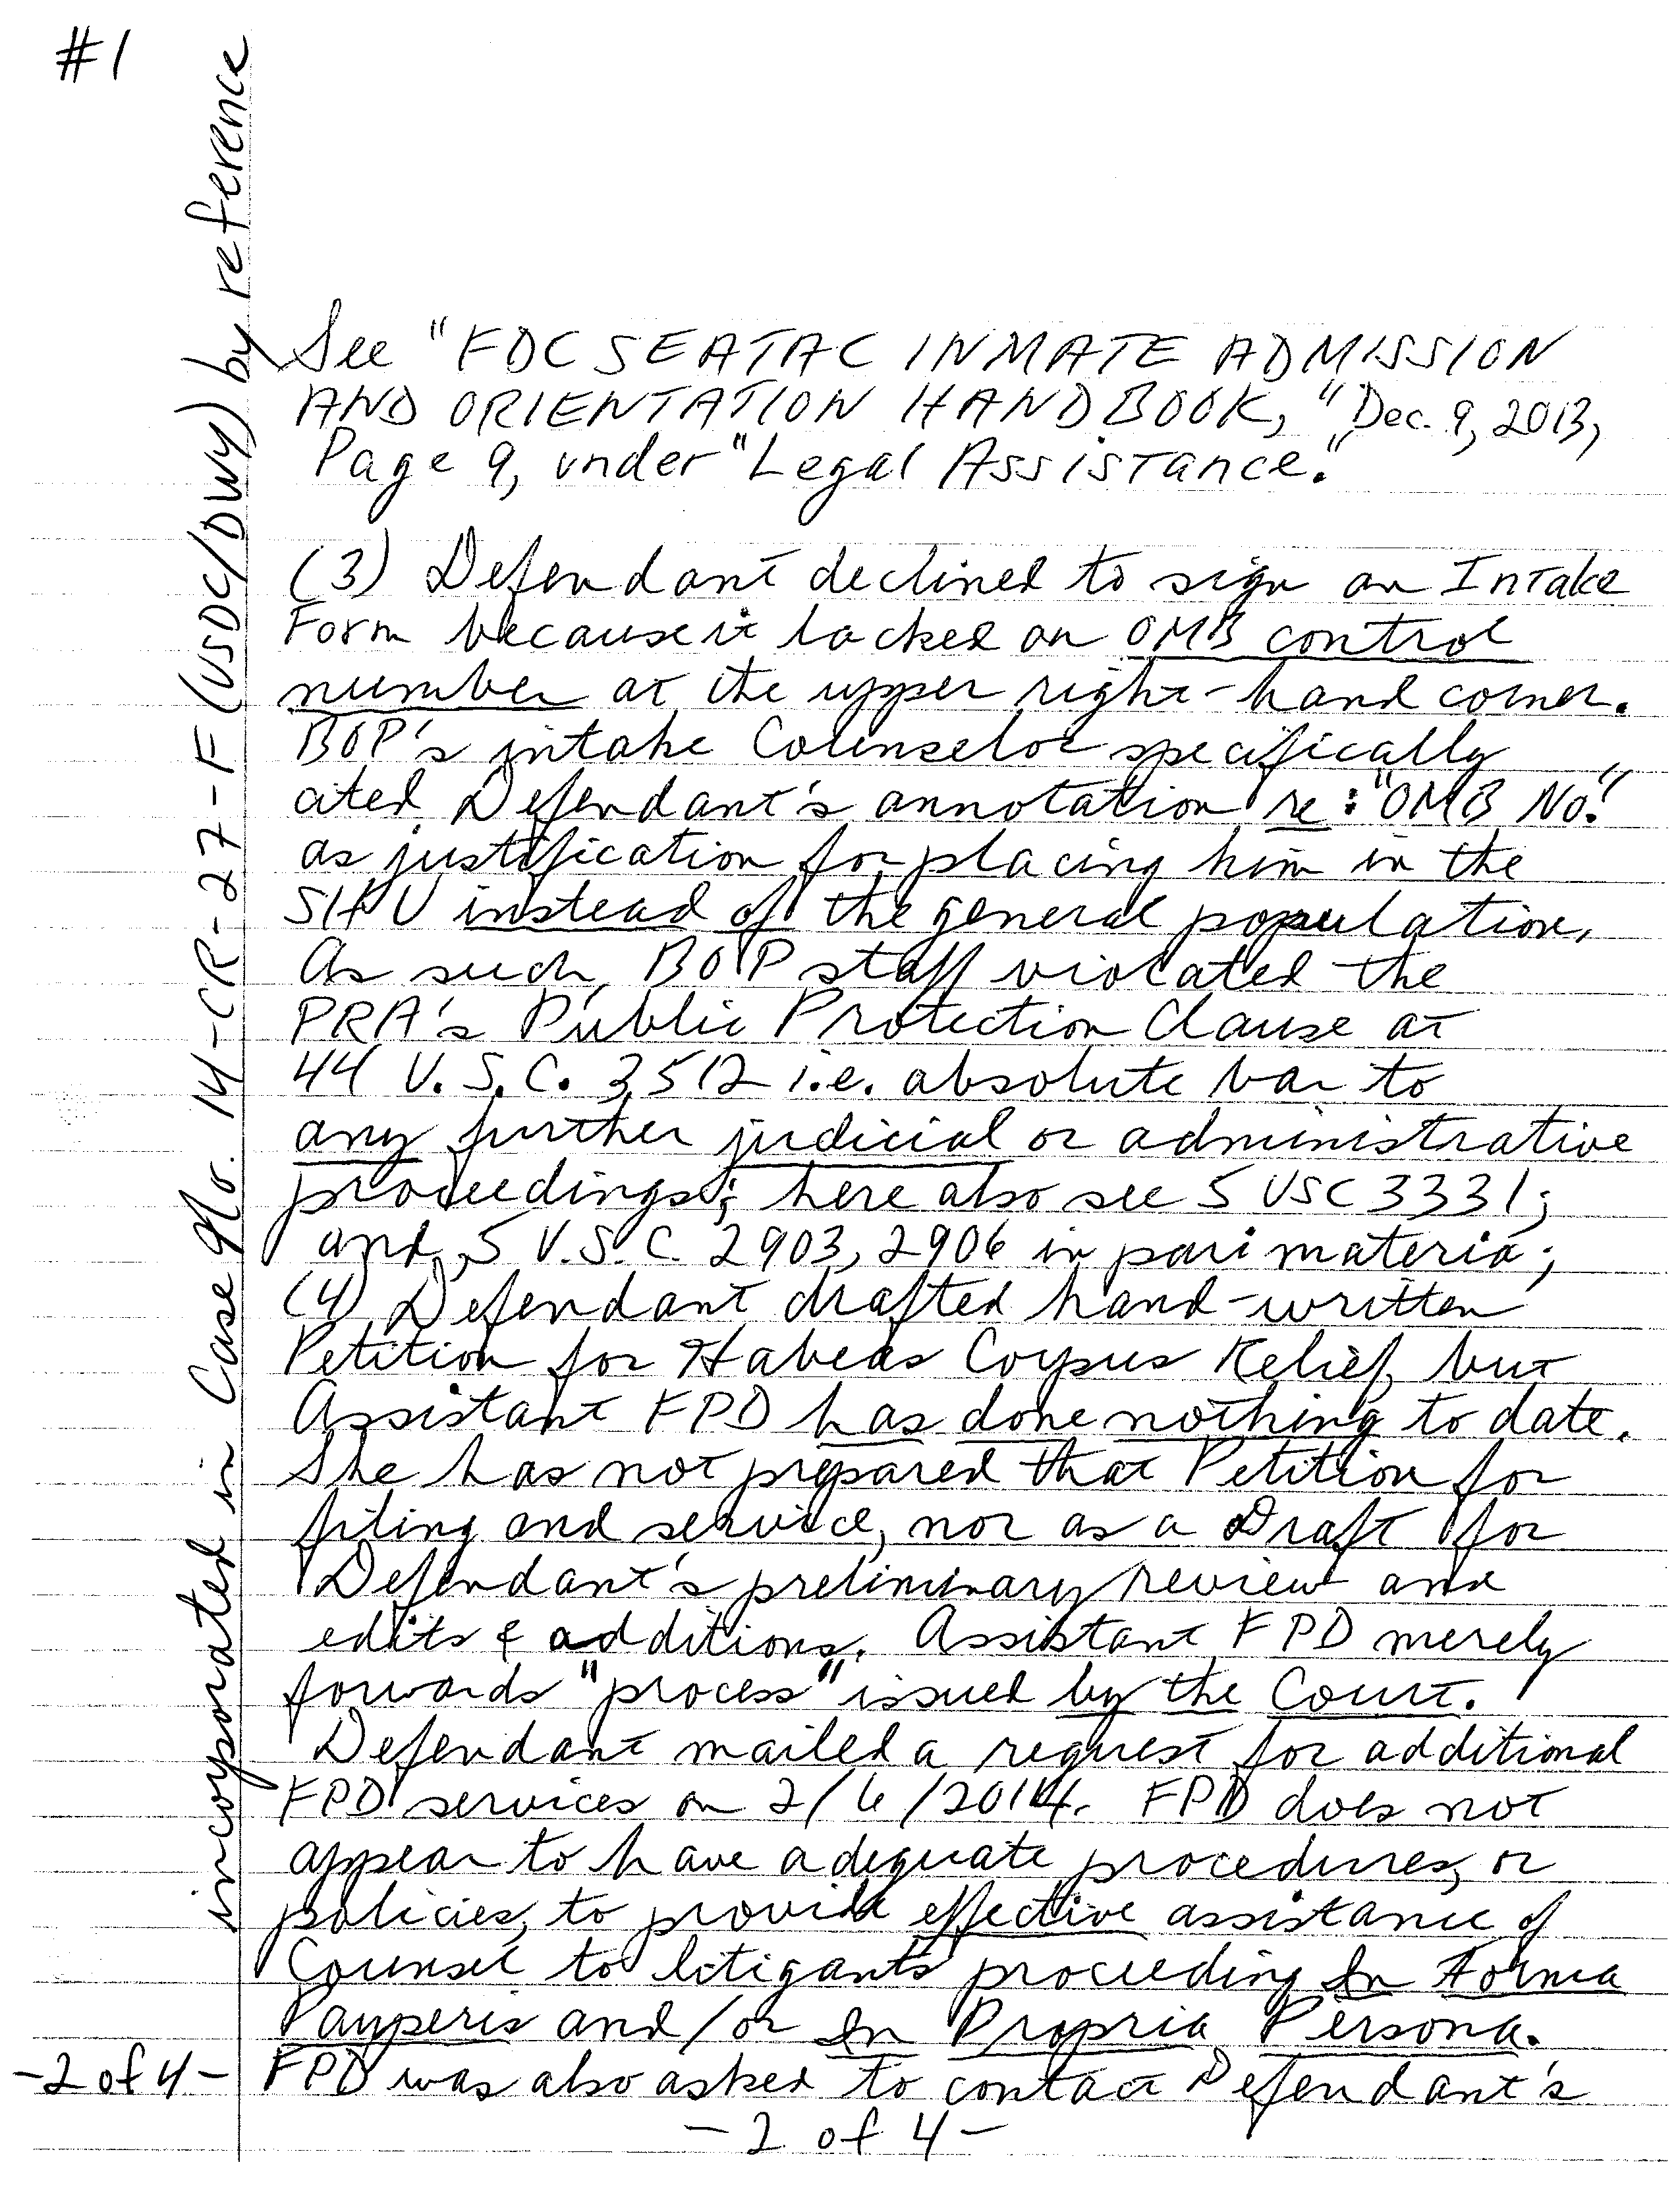 #1
incorporated in Case No. 14-CR-27-F (USDC/DWY) by reference
See "FDC SEATAC INMATE ADMISSION
AND ORIENTATION HANDBOOK," Dec. 9, 2013,
Page 9, under "Legal Assistance."
(3) Defendant declined to sign an Intake
Form because it lacked an OMB control
number at the upper right-hand corner.
BOP's intake Counselor specifically
cited Defendant's annotation re: "OMB No."
as justification for placing him in the
SHU instead of the general population.
As such, BOP staff violated the
PRA's Public Protection Clause at
44 U.S.C. 3512 i.e. absolute bar to
any further judicial or administrative
proceedings; here also see 5 USC 3331;
and 5 U.S.C. 2903, 2906 in pari materia;
(4) Defendant drafted hand-written
Petition for Habeas Corpus Relief, but
Assistant FPD has done nothing to date.
She has not prepared that Petition for
filing and service, nor as a Draft for
Defendant's preliminary review and
edits & additions. Assistant FPD merely
forwards "process" issued by the Court.
Defendant mailed a request for additional
FPD services on 2/6/2014. FPD does not
appear to have adequate procedures, or
policies, to provide effective assistance of
Counsel to litigants proceeding In Forma
Pauperis and/or In Propria Persona.
-2 of 4- FPD was also asked to contact Defendant's
-2 of 4-